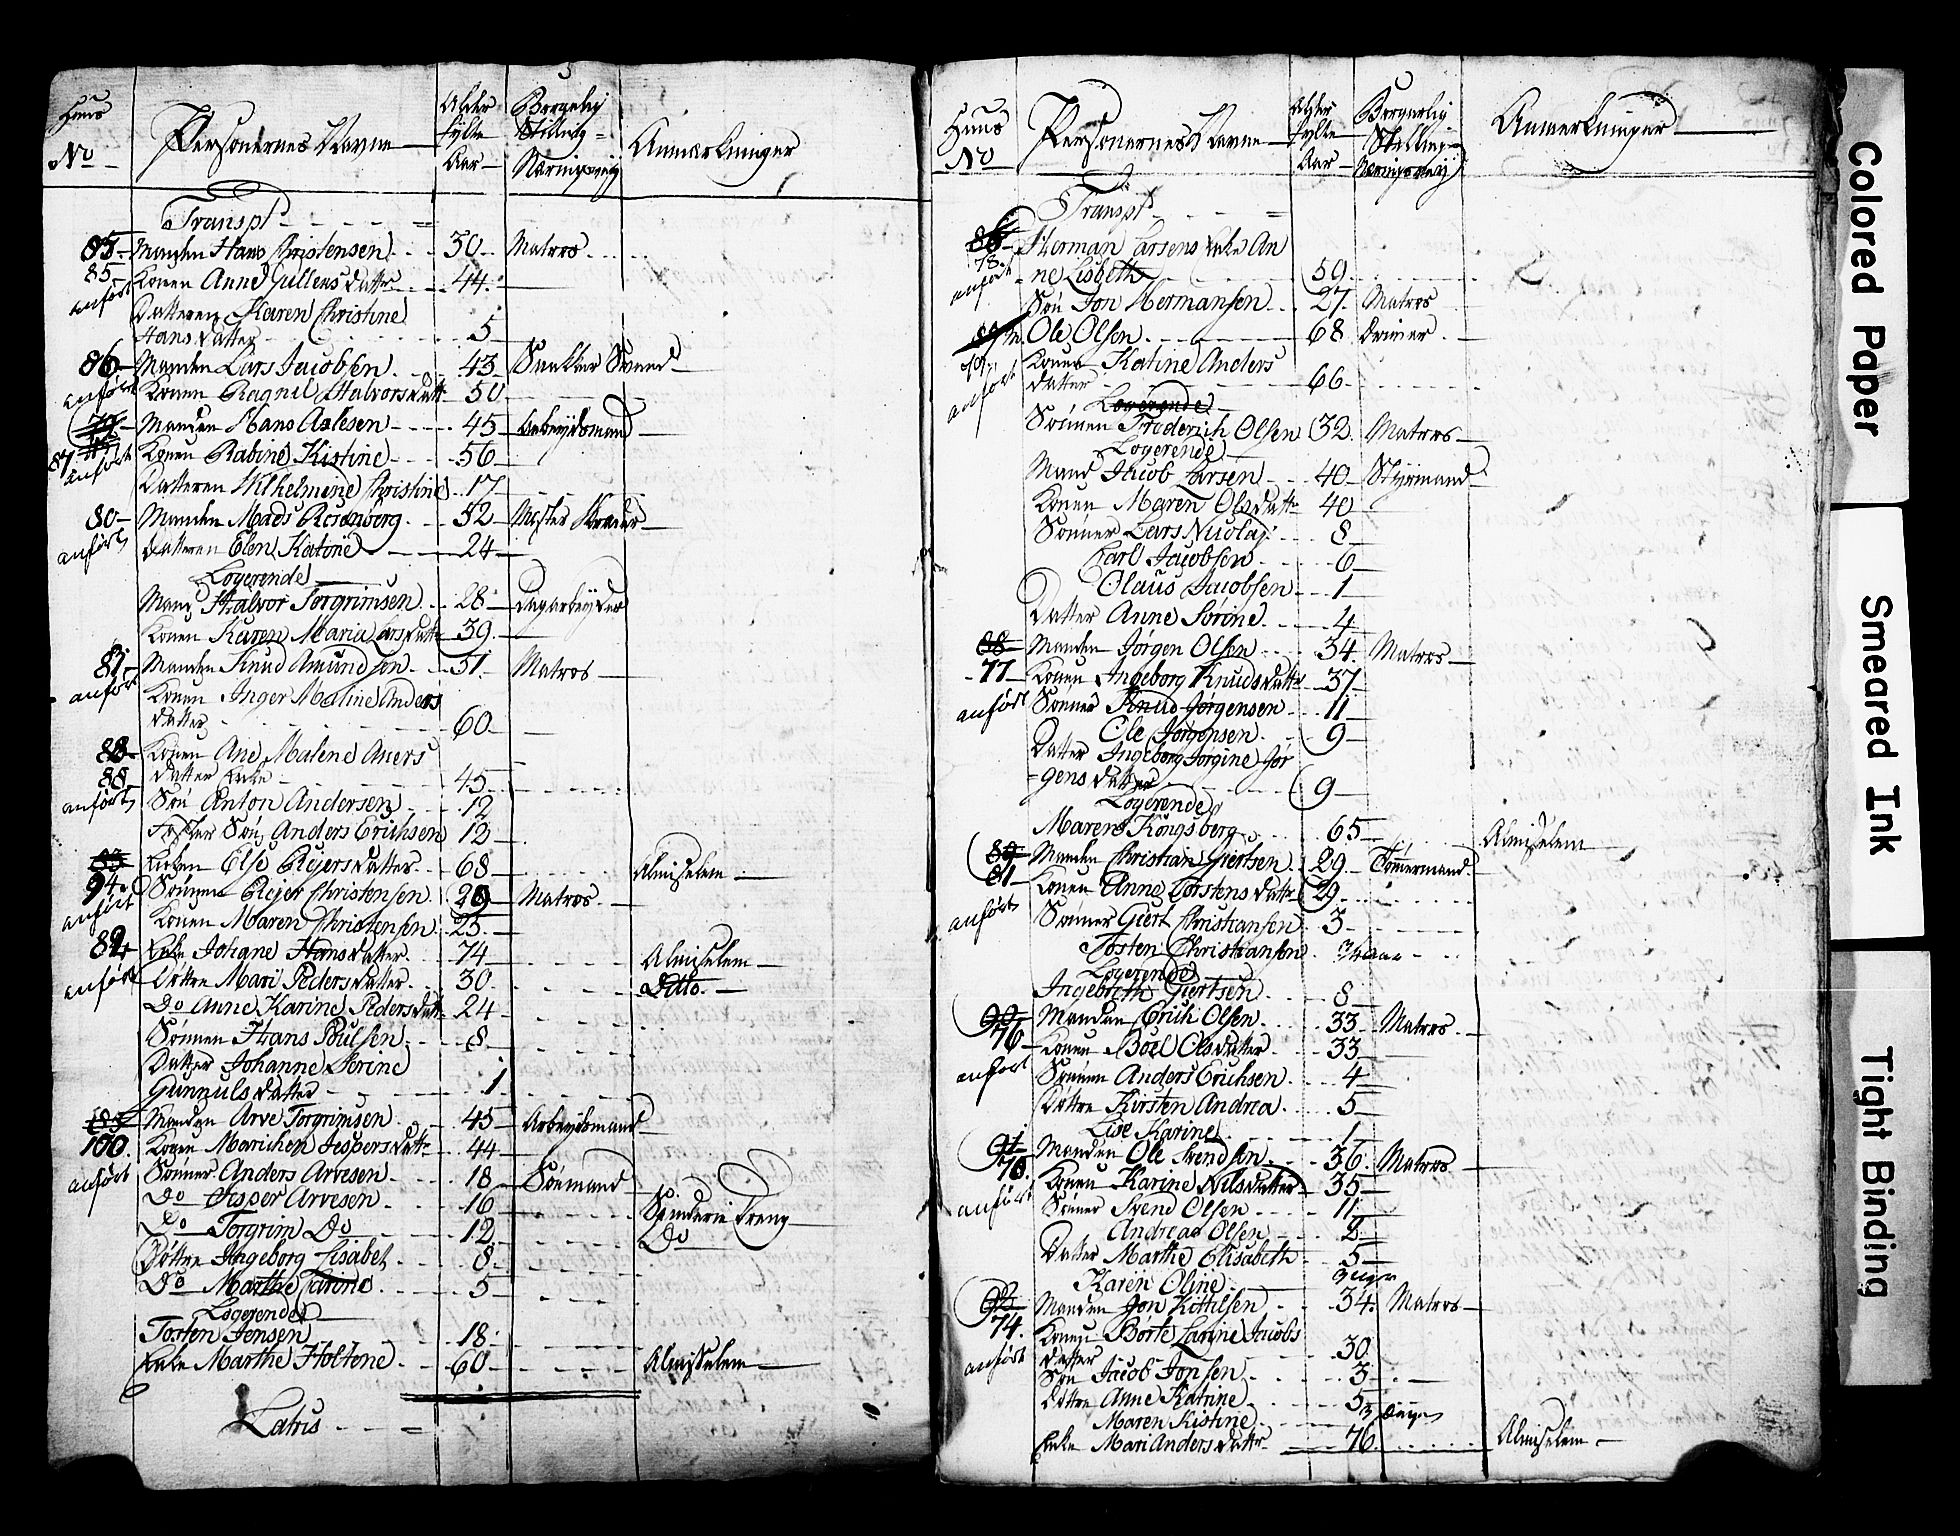 Huus No Personernes Navne Alder fylte Aar Borgerlig Stilling Næringsveij Anmerkninger
Transpt
85 Manden Hans Christensen 30 Matros
85 Konen Anne Gullens datter 44
anført
Datteren Karen Christine
Hans datter 5
86 Manden Lars Jacobsen 43
anført Konen Ragnil Halvors datt 50
79 Manden Hans Aslesen 45 Arbeydsmand
87 Konen Rabine Kistine 56
anført
Datteren Wilhelmine Christine 17
80 Manden Mads Rosenberg 52 Mester
anført Datteren Elen Katrine 24
Logerende
Mand Halvor Torgrimsen 28 Dagarbeyder
Konen Karen Maria Lars datt 39
81 Manden Knud Amundsen 51 Matros
anført
Konen Inger Maline Anders
datter 60
88 Konen Ane Malene Auers
88 datter Enke 45
anført Søn Anton Andersen 12
Foster Søn Anders Erichsen 12
83 Enken Else Rejers datter 68 Almisselem
94 Sønnen Rejer Christensen 29 Matros
anført Konen Maren Christensen 23
84 Enke Johane Hans datter 74 Almisselem
anført Døttre Mari Peders datter 30 Ditto
Do Anne Karine Peders datt 24
Sønnen Hans Poulsen 8
Datter Johanne Serine
Gunnuls datter 1
85 Manden Arve Torgrimsen 45 Arbeydsmand
100 Konen Marichen Jespers datt 44
anført Sønner Anders Arvesen 18 Søemand
Do Jesper Arvesen 16 Spinderie dreng
Do Torgrim Do 12 Do
Døttre Ingeborg Lisabet 8
Do Marthe Carine 5
Logerende
Tosten Jensen 18
Enke Marthe Holtene 60 Almisselem
Latris
Huus No Personernes Navne Alder fylte Aar Borgerlig Stilling Næringsveij Anmerkninger
Transpt
86 Herman Larsens Enke An
78 ne Lisbeth 59
anført
Søn Jon Hermansen 27 Matros
Ole Olsen 68
Konen Katine Anders
anført datter 66
Logerende
Sønnen Frederich Olsen 32 Matros
Logerende
Mand Jacob Larsen 40 Styrmand
Konen Maren Ols datt 40
Sønner Lars Nicolaj 8
Carl Jacobsen 6
Olaus Jacobsen 1
Datter Anne Sørine 4
88 Manden Jørgen Olsen 34 Matros
77 Konen Ingeborg Knuds datt 37
anført Sønner Knud Jørgensen 11
Ole Jørgensen 9
Datter Ingeborg Jørgine Jør
gens datter 9
Logerende
Maren Kongsberg 65 Almisselem
89 Manden Christian Giertsen 29 Tømmermand
81 Konen Anne Tostens datt 29
anført Sønner Giert Christiansen 3
Tosten Christiansen 3/4 aar
Logerende
Ingebreth Giertsen 8
90 Manden Erich Olsen 33 Matros
76 Konen Boel Ols datter 33
anført Sønnen Anders Erichsen 4
Døttre Kirsten Andrea 5
Lise Karine 1
91 Manden Ole Svendsen 36 Matros
70 Konen Karine Nils datter 35
anført Sønner Svend Olsen 11
Andreas Olsen 2
Datter Marthe Elisabeth 5
Karen Oline 3 uger
92 Manden Jon Kittilsen 34 Matros
74 Konen Børte Larine Jacobs
anført datter 30
Søn Jacob Jonsen 3
Døttre Anne Katrine 5
Maren Kistine 3 dage
Enke Mari Anders datt 76 Almisselem
Colored Paper
Smeared Ink
Tight Binding